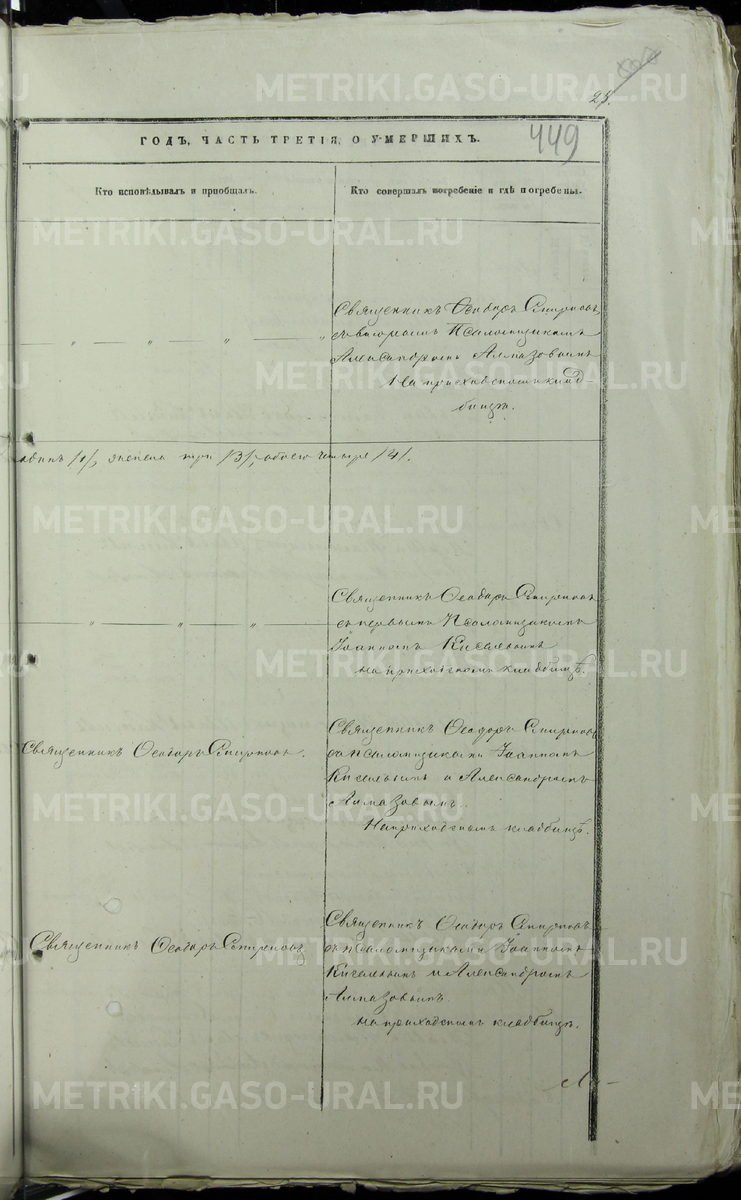 METRIKI.GASO-URAL.RU
25.
449
ГОДЪ, ЧАСТЬ ТРЕТІЯ, О УМЕРШИХЪ.
Кто исповѣдывалъ и пріобщалъ.
Кто совершалъ погребеніе и гдѣ погребены.
Священникъ Ѳеодоръ Смирновъ
Псаломщикомъ
Александромъ Алмазовымъ
На приходскомъ клад-
бищѣ.
" " " "
одинъ /1/, женска три /3/, обоего четыре /4/.
Священникъ Ѳеодоръ Смирновъ
съ первымъ Псаломщикомъ
Іоанномъ Киселевымъ
на приходскомъ кладбищѣ.
" " "
Священникъ Ѳеодоръ Смирновъ.
Священникъ Ѳеодоръ Смирновъ
съ псаломщиками Іоанномъ
Киселевымъ и Александромъ
Алмазовымъ.
На приходскомъ кладбищѣ.
Священникъ Ѳеодоръ Смирновъ
Священникъ Ѳеодоръ Смирновъ
съ псаломщиками Іоанномъ
Киселевымъ и Александромъ
Алмазовымъ.
на приходскомъ кладбищѣ.